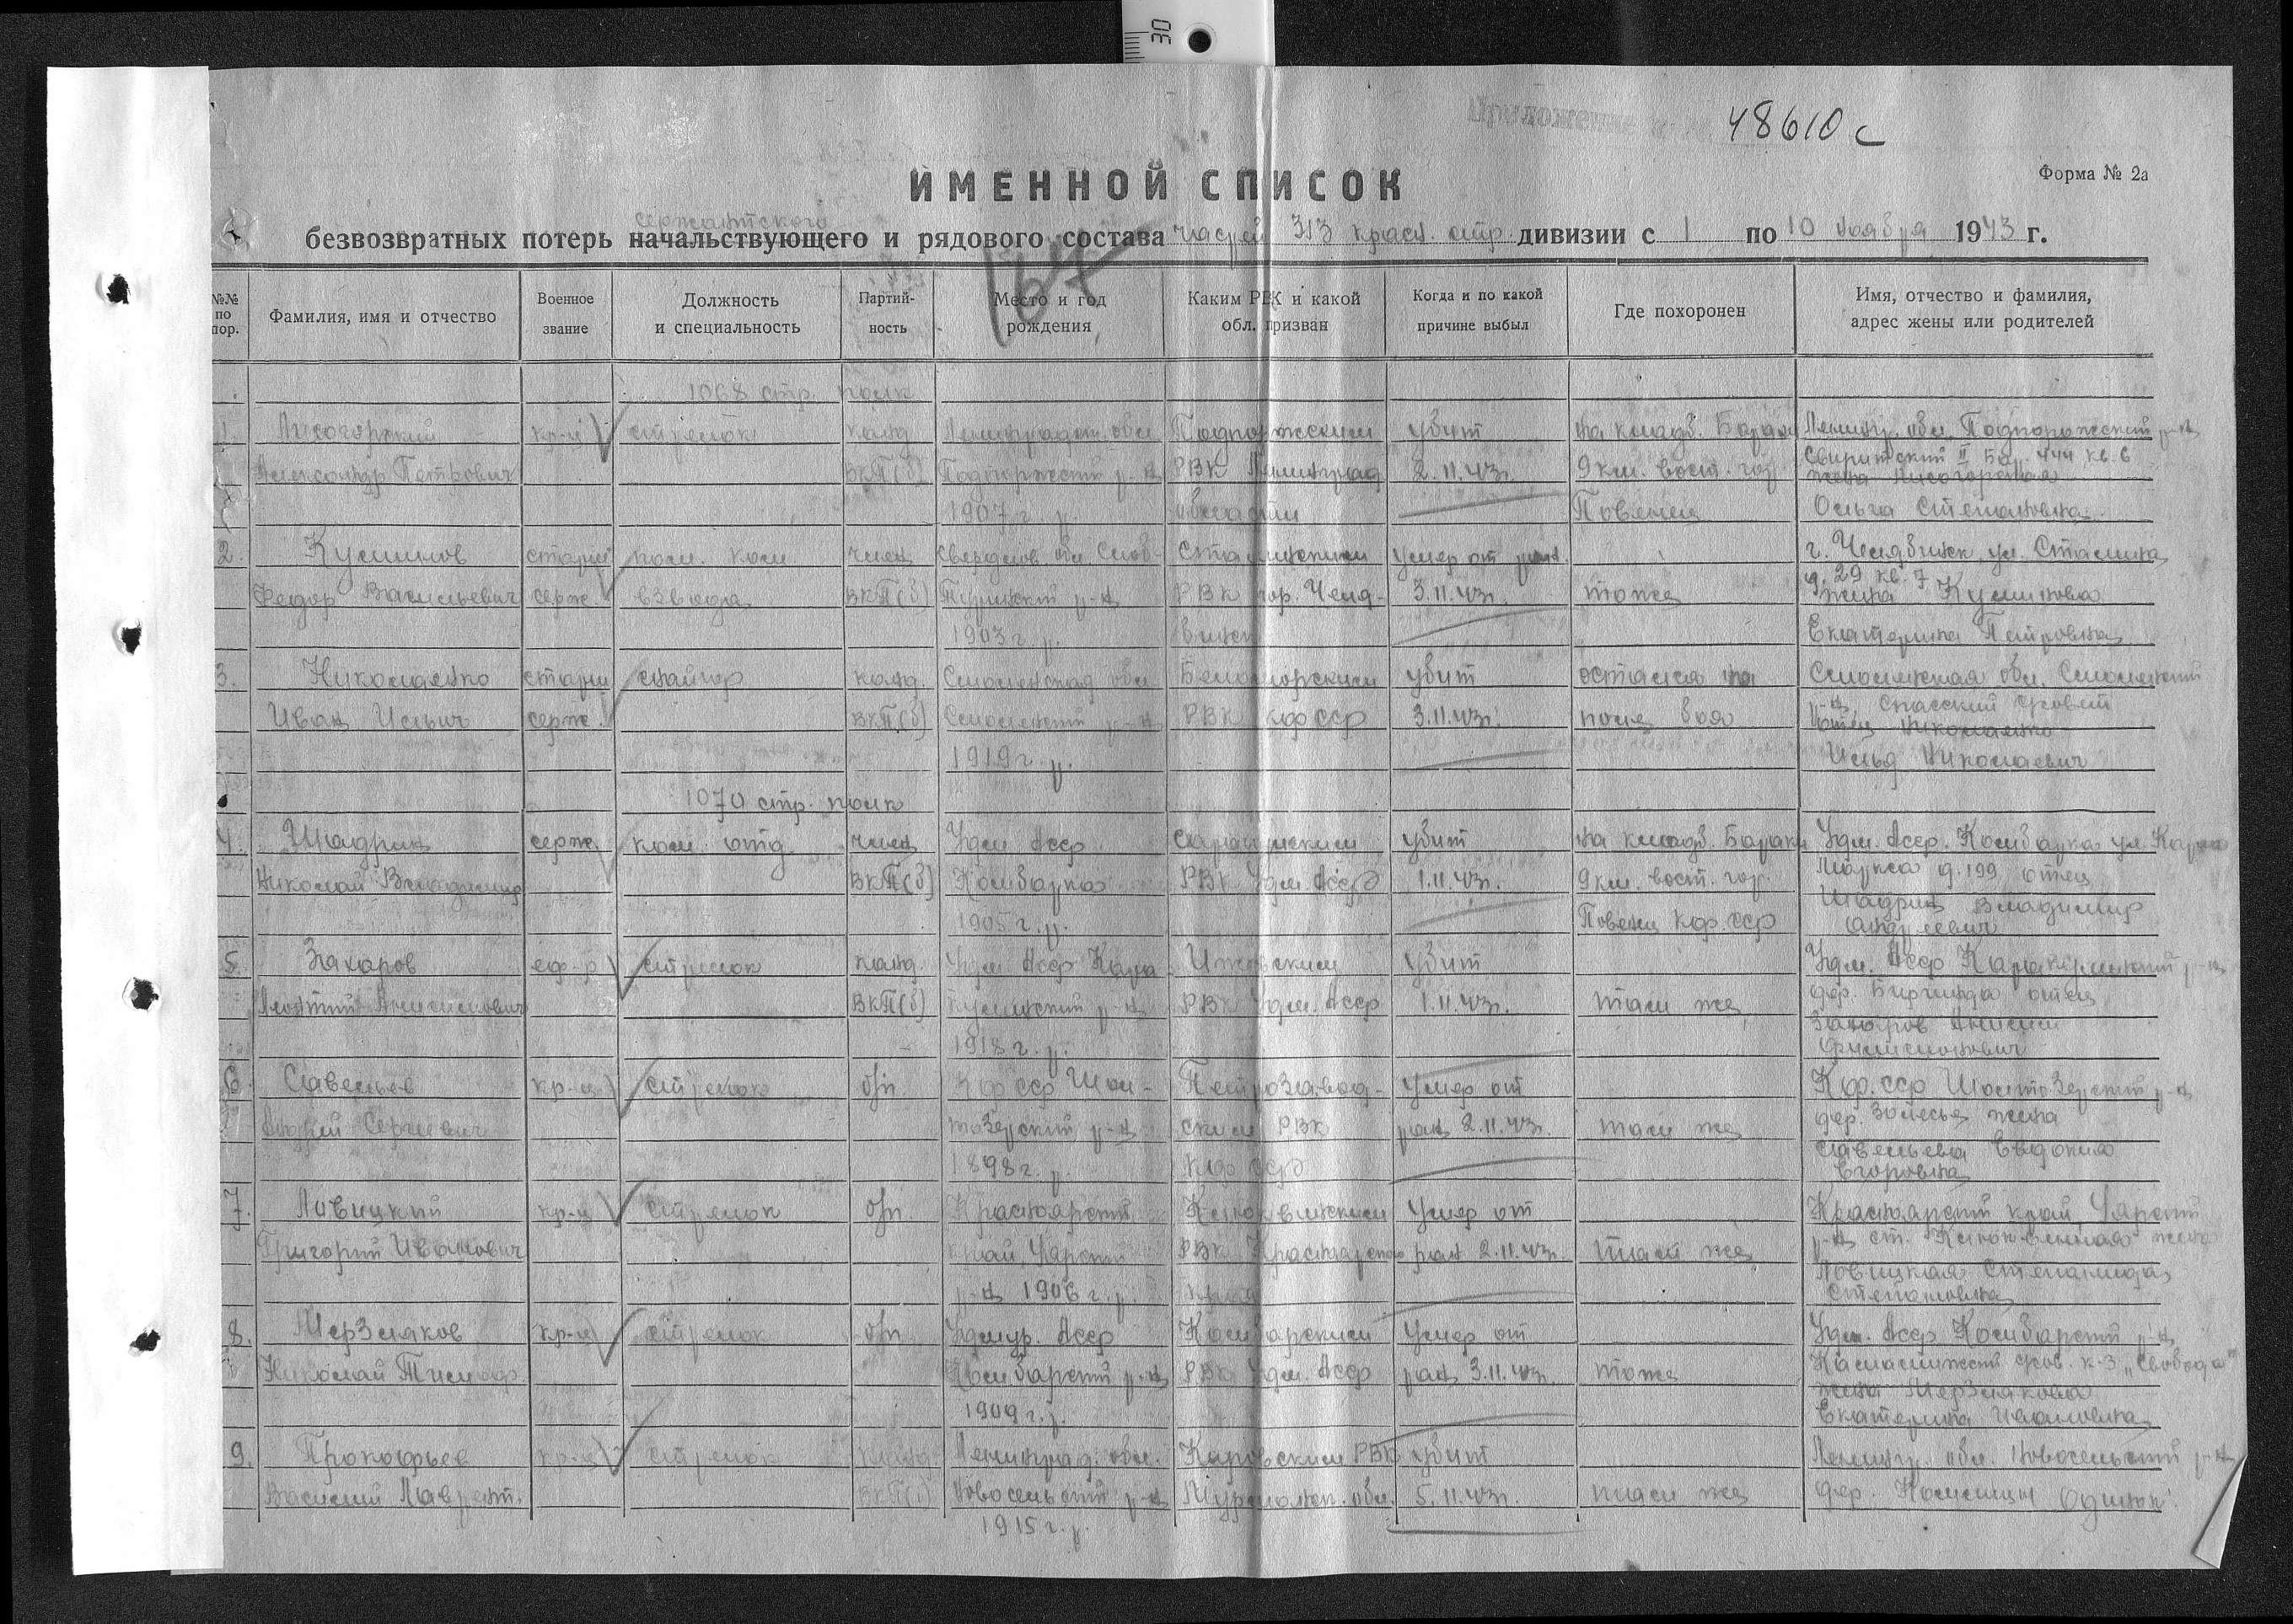 30
Приложение к № 48610с
ИМЕННОЙ СПИСОК
Форма № 2а
сержантского
безвозвратных потерь начальствующего и рядового состава частей 313 красн. стр. дивизии с 1 по 10 ноября 1943 г.
167
№№ по пор.
Фамилия, имя и отчество
Военное звание
Должность и специальность
Партийность
Место и год рождения
Каким РВК и какой обл. призван
Когда и по какой причине выбыл
Где похоронен
Имя, отчество и фамилия, адрес жены или родителей
1068 стр. полк
1. Лисогорский кр-ц стрелок канд. Ленинградск. обл. Подпорожским убит на кладб. Ленингр. обл. Подпорожский р-н
Александр Петрович ВКП(б) Подпорожский р-н РВК Ленинград. 2.11.43г. 9 км. вост. гор. Свирьский II 444 кв. 6
жена Лисогорская
1907 г. р. области Повенец Ольга Степановна
2. Куклинов старш. пом. ком. член Свердлов. обл. Сталинским умер от ран. г. Челябинск ул. Сталина
д. 29 кв. 7
Федор Васильевич серж. взвода ВКП(б) Туринский р-н РВК гор. Челя- 3.11.43г. тоже жена
1903 г. р. бинск Екатерина Петровна
3. Николаенко старш. снайпер канд. Смоленская обл. Беломорским убит остался на Смоленская обл. Смоленский
Иван Ильич серж. ВКП(б) Смоленский р-н РВК КФССР 3.11.43г. поле боя р-н, Спасский
отец Николаенко
1919 г. р. Илья Николаевич
1070 стр. полк
4. Шадрин серж. ком. отд. член Удм. АССР Сарапульским убит на кладб. Удм. АССР. Камбарка ул. Карла
Николай Владимир. ВКП(б) Камбарка РВК Удм. АССР 1.11.43г. 9 км. вост. гор. Маркса д. 199 отец
Шадрин Владимир
1905 г. р. Повенец КФ.ССР Андреевич
5. Захаров еф-р стрелок канд. Удм. АССР Кара- Ижевским убит Удм. АССР Каракулинский р-н
Леонтий Анисимович ВКП(б) кулинский р-н РВК Удм. АССР 1.11.43г. там же дер. Биргинда отец
Захаров Анисим
1918 г. р. Филимонович
6. Савельев кр-ц стрелок б/п КФССР Шол- Петрозавод- Умер от КФ.ССР Шолтозерский р-н
Андрей Сергеевич тозерский р-н ским РВК ран 2.11.43г. там же дер. Залесье жена
Савельева Евдокия
1898 г. р. КФССР Егоровна
7. Ловицкий кр-ц стрелок б/п Красноярский Клюквинским Умер от Красноярский край, Уярский
Григорий Иванович край, Уярский РВК Красноярского ран 2.11.43г. там же р-н ст. Клюквенная жена
Ловицкая Степанида
р-н 1906 г. р. края Степановна
8. Мерзляков кр-ц стрелок б/п Удмур. АССР Камбарским Умер от Удм. АССР Камбарский р-н
Николай Тимоф. Камбарский р-н РВК Удм. АССР ран 3.11.43г. тоже сов. к-з „Свобода"
жена Мерзлякова
1909 г. р. Екатерина
9. Прокофьев кр-ц стрелок канд. Ленинград. обл. Кировским РВК убит Ленингр. обл. Новосельский р-н
Василий Лаврент. ВКП(б) Новосельский р-н Мурманск. обл. 5.11.43г. там же дер. Одинок.
1915 г. р.